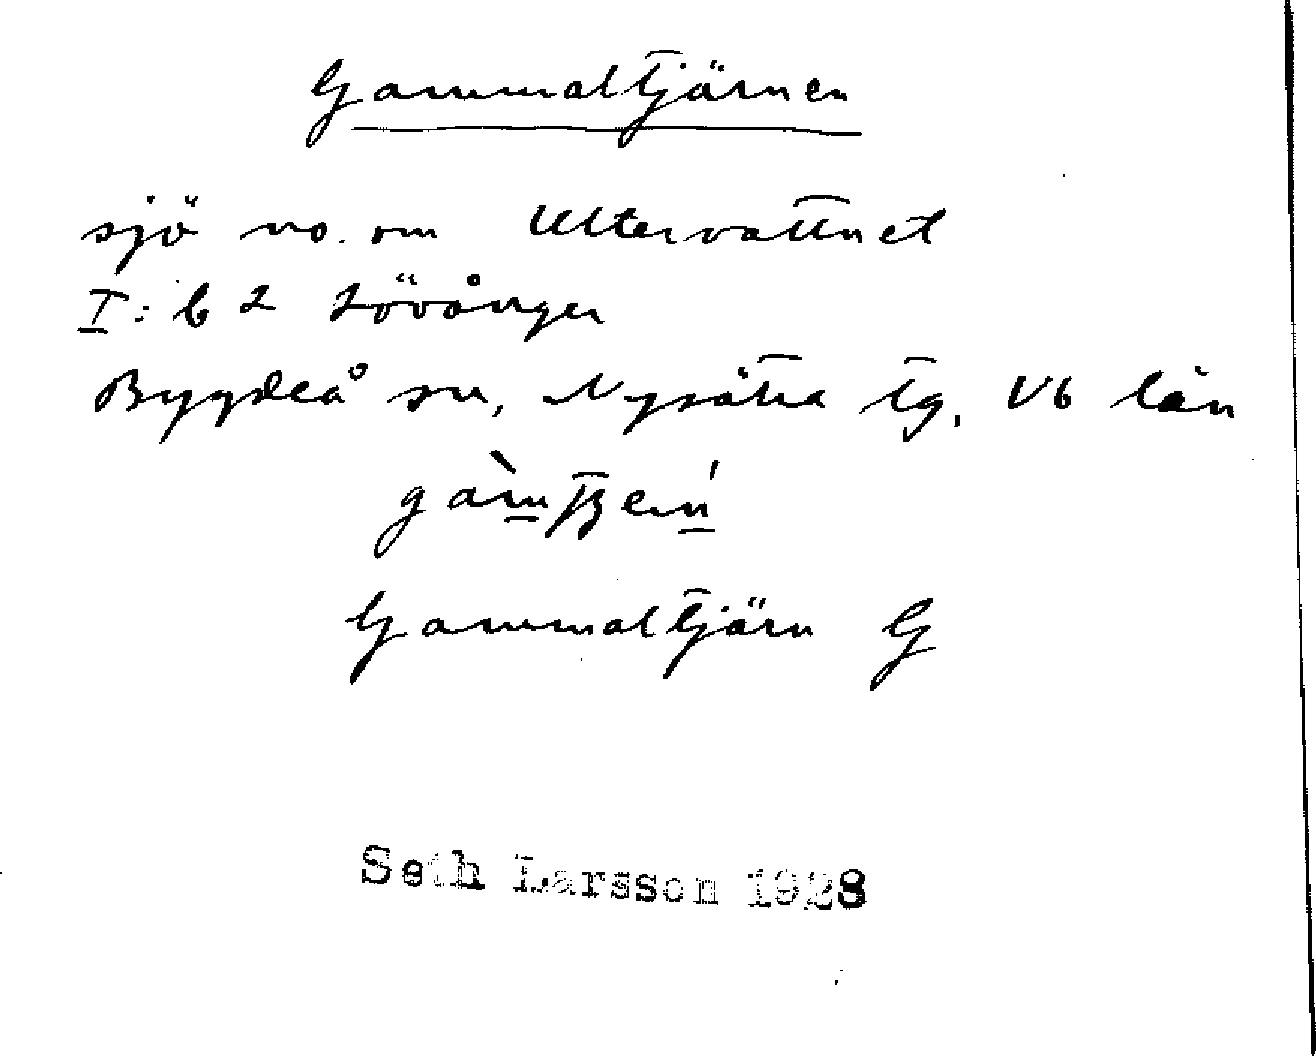 Gammaltjärnen
sjö no. om Ultervattnet
I: b 2 Lövånger
Bygdeå sn, Nysätra tg, Vb län
Gammaltjärn G
Seth Larsson 1928